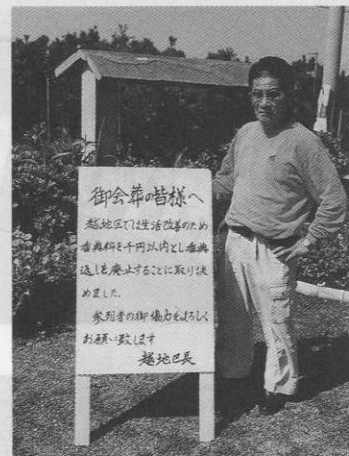 御会葬の皆様へ
越地区では生活改善のため
香典料を千円以内とし香典
返しを廃止することに取り決
めました。
参列者の御協力をよろしく
お願い致します
越地区長